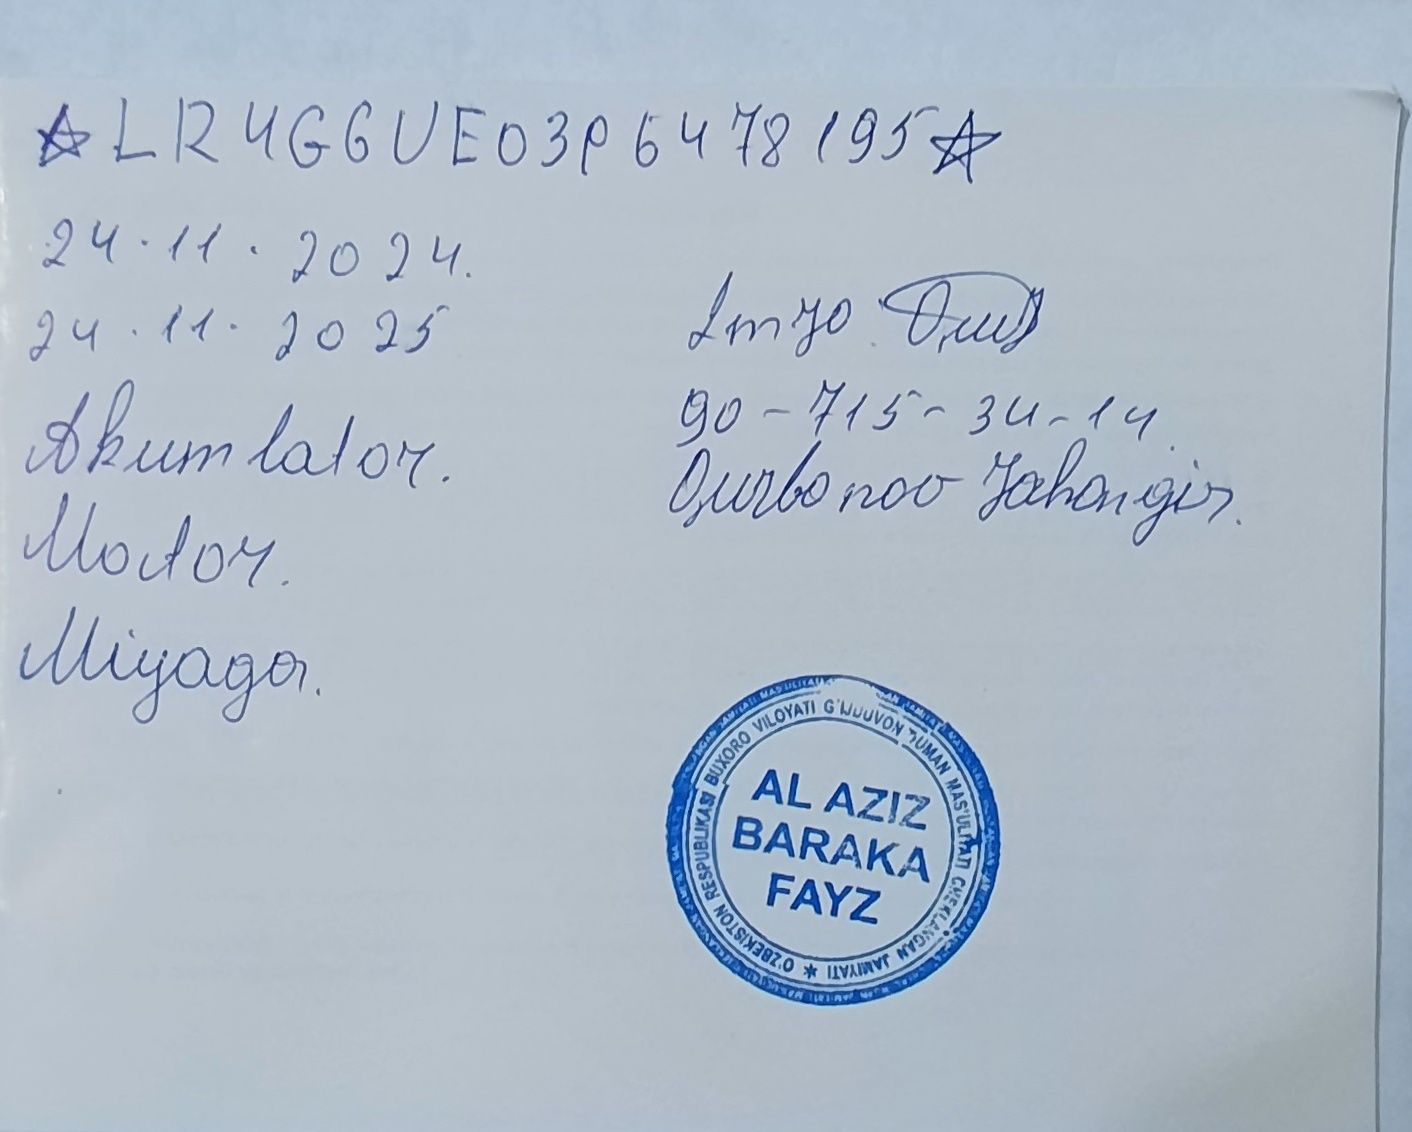 ☆LR4G6UE03P6478195☆
24.11.2024.
24.11.2025
Akumlator.
Motor.
Miyaga.
Imzo
90-715-34-14
Qurbonov Jahongir.
O'ZBEKISTON RESPUBLIKASI BUXORO VILOYATI G'IJDUVON TUMAN MAS'ULIYATI CHEKLANGAN JAMIYATI *
AL AZIZ
BARAKA
FAYZ